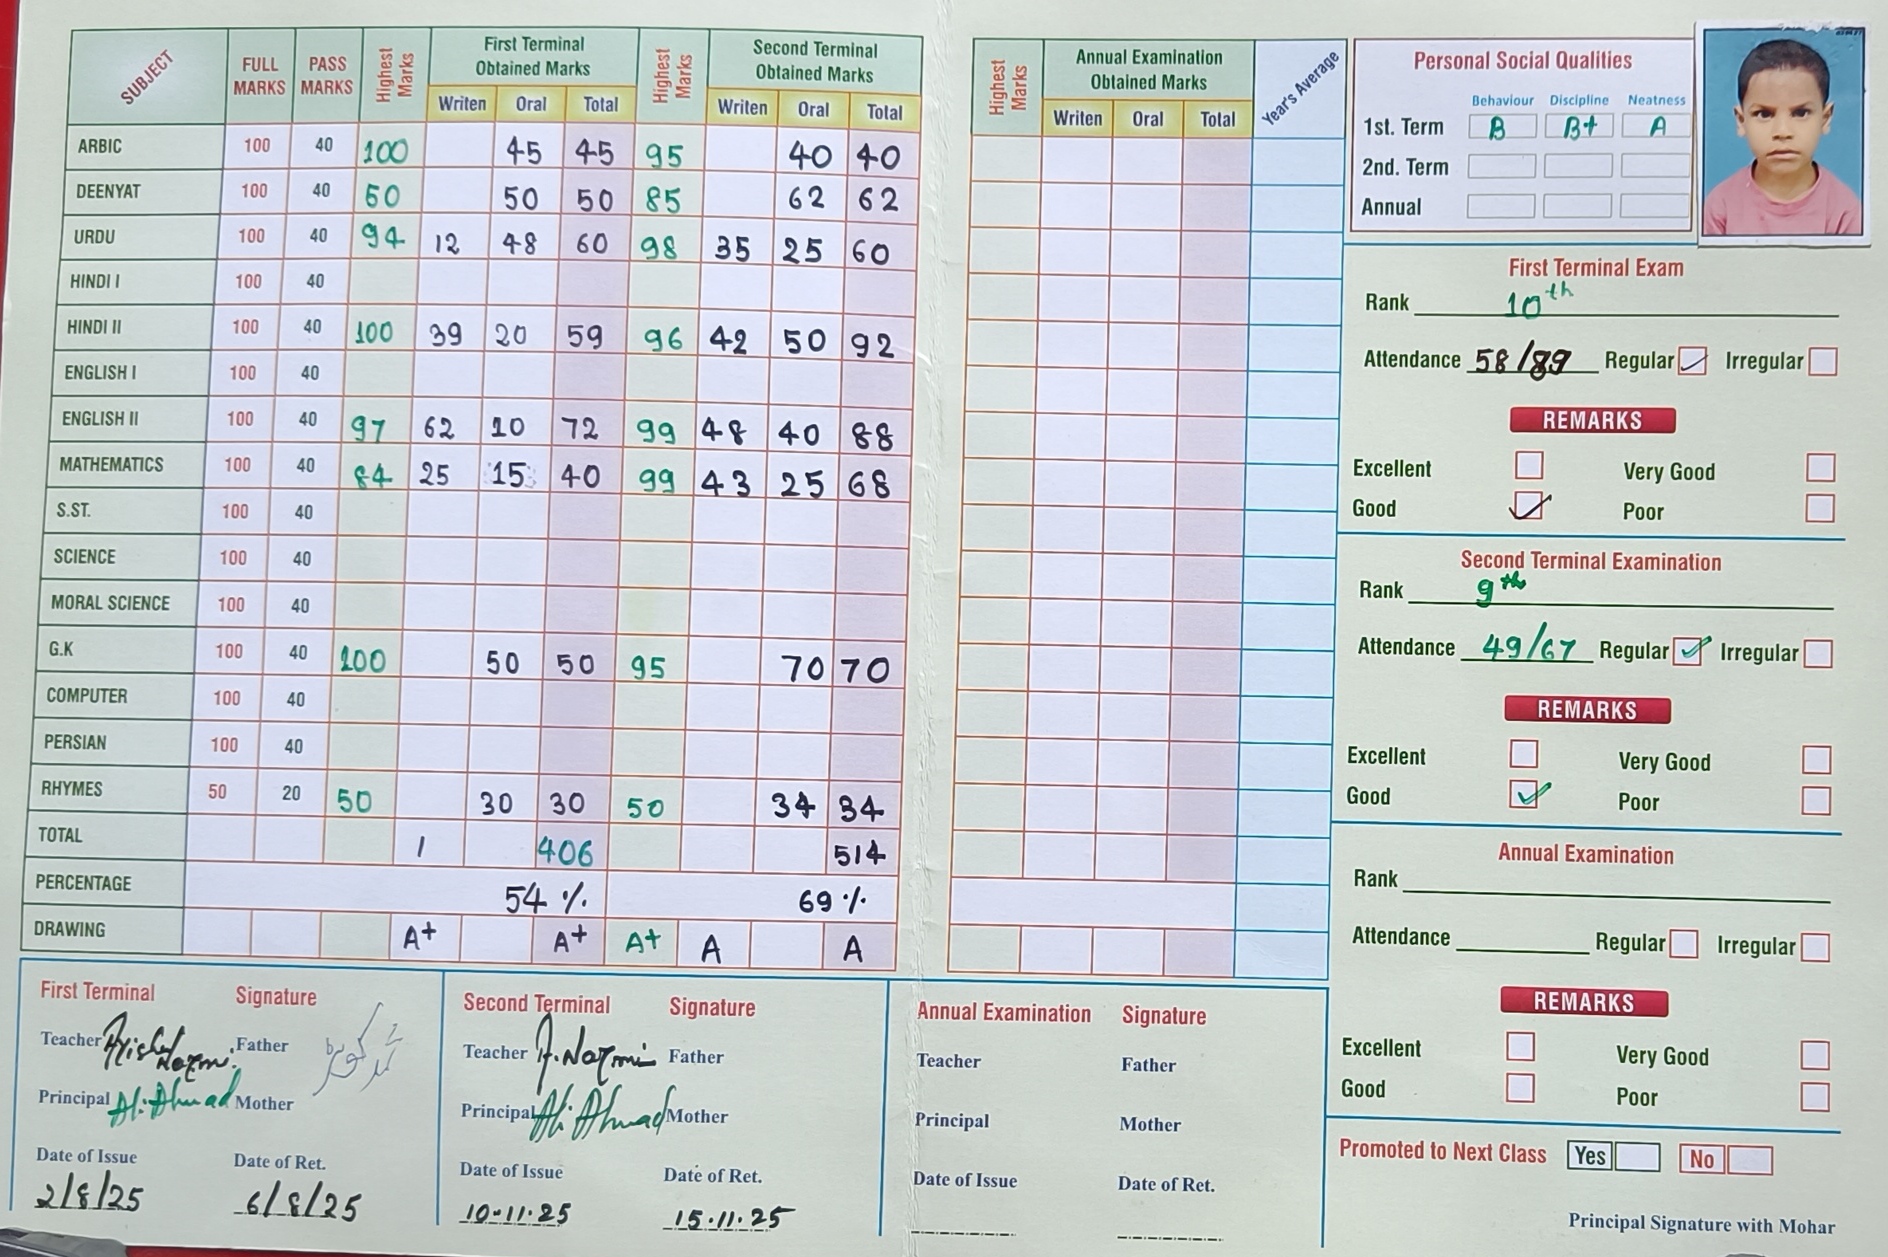 SUBJECT FULL MARKS PASS MARKS Highest Marks First Terminal Obtained Marks Highest Marks Second Terminal Obtained Marks
Writen Oral Total Writen Oral Total
ARBIC 100 40 100 45 45 95 40 40
DEENYAT 100 40 60 50 50 85 62 62
URDU 100 40 94 12 48 60 98 35 25 60
HINDI I 100 40
HINDI II 100 40 100 39 20 59 96 42 50 92
ENGLISH I 100 40
ENGLISH II 100 40 97 62 10 72 99 48 40 88
MATHEMATICS 100 40 84 25 15 40 99 43 25 68
S.ST. 100 40
SCIENCE 100 40
MORAL SCIENCE 100 40
G.K 100 40 100 50 50 95 70 70
COMPUTER 100 40
PERSIAN 100 40
RHYMES 50 20 50 30 30 50 34 34
TOTAL 1 406 514
PERCENTAGE 54 % 69 %
DRAWING A+ A+ A+ A A
First Terminal Signature
Teacher Father
Principal Ali Ahmad Mother
Date of Issue Date of Ret.
2/8/25 6/8/25
Second Terminal Signature
Teacher A. Nazmi Father
Principal Ali Ahmad Mother
Date of Issue Date of Ret.
10.11.25 15.11.25
Highest Marks Annual Examination Obtained Marks Year's Average
Writen Oral Total
Annual Examination Signature
Teacher Father
Principal Mother
Date of Issue Date of Ret.
Personal Social Qualities
Behaviour Discipline Neatness
1st. Term B B+ A
2nd. Term
Annual
First Terminal Exam
Rank 10th
Attendance 58/89 Regular Irregular
REMARKS
Excellent Very Good
Good Poor
Second Terminal Examination
Rank 9th
Attendance 49/67 Regular Irregular
REMARKS
Excellent Very Good
Good Poor
Annual Examination
Rank
Attendance Regular Irregular
REMARKS
Excellent Very Good
Good Poor
Promoted to Next Class Yes No
Principal Signature with Mohar